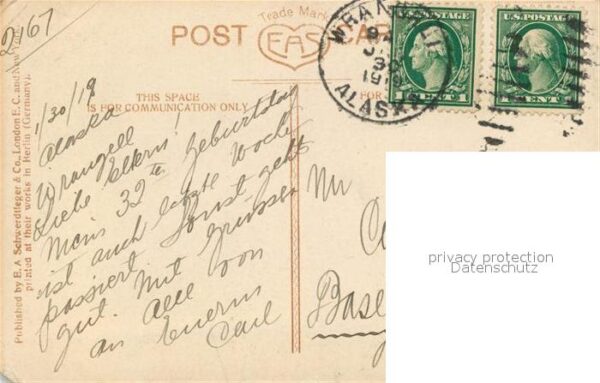 2-67
Trade Mark
POST CAR
EAS
WRANGELL
ALASKA
U.S. POSTAGE
U.S. POSTAGE
1 CENT 1
CENTS
THIS SPACE
IS FOR COMMUNICATION ONLY
FOR
Published by E. A. Schwerdtfeger & Co., London E. C. and New York
printed at their works in Berlin (Germany).
1/30/19
Alaska
Wrangell
Liebe Eltern!
Mein 32te Geburtstag
ist auch letzte Woche
passiert. Sonst geht
gut. Mit Grüssen
an alle von
Euerm
Carl
Mr
Base
privacy protection
Datenschutz